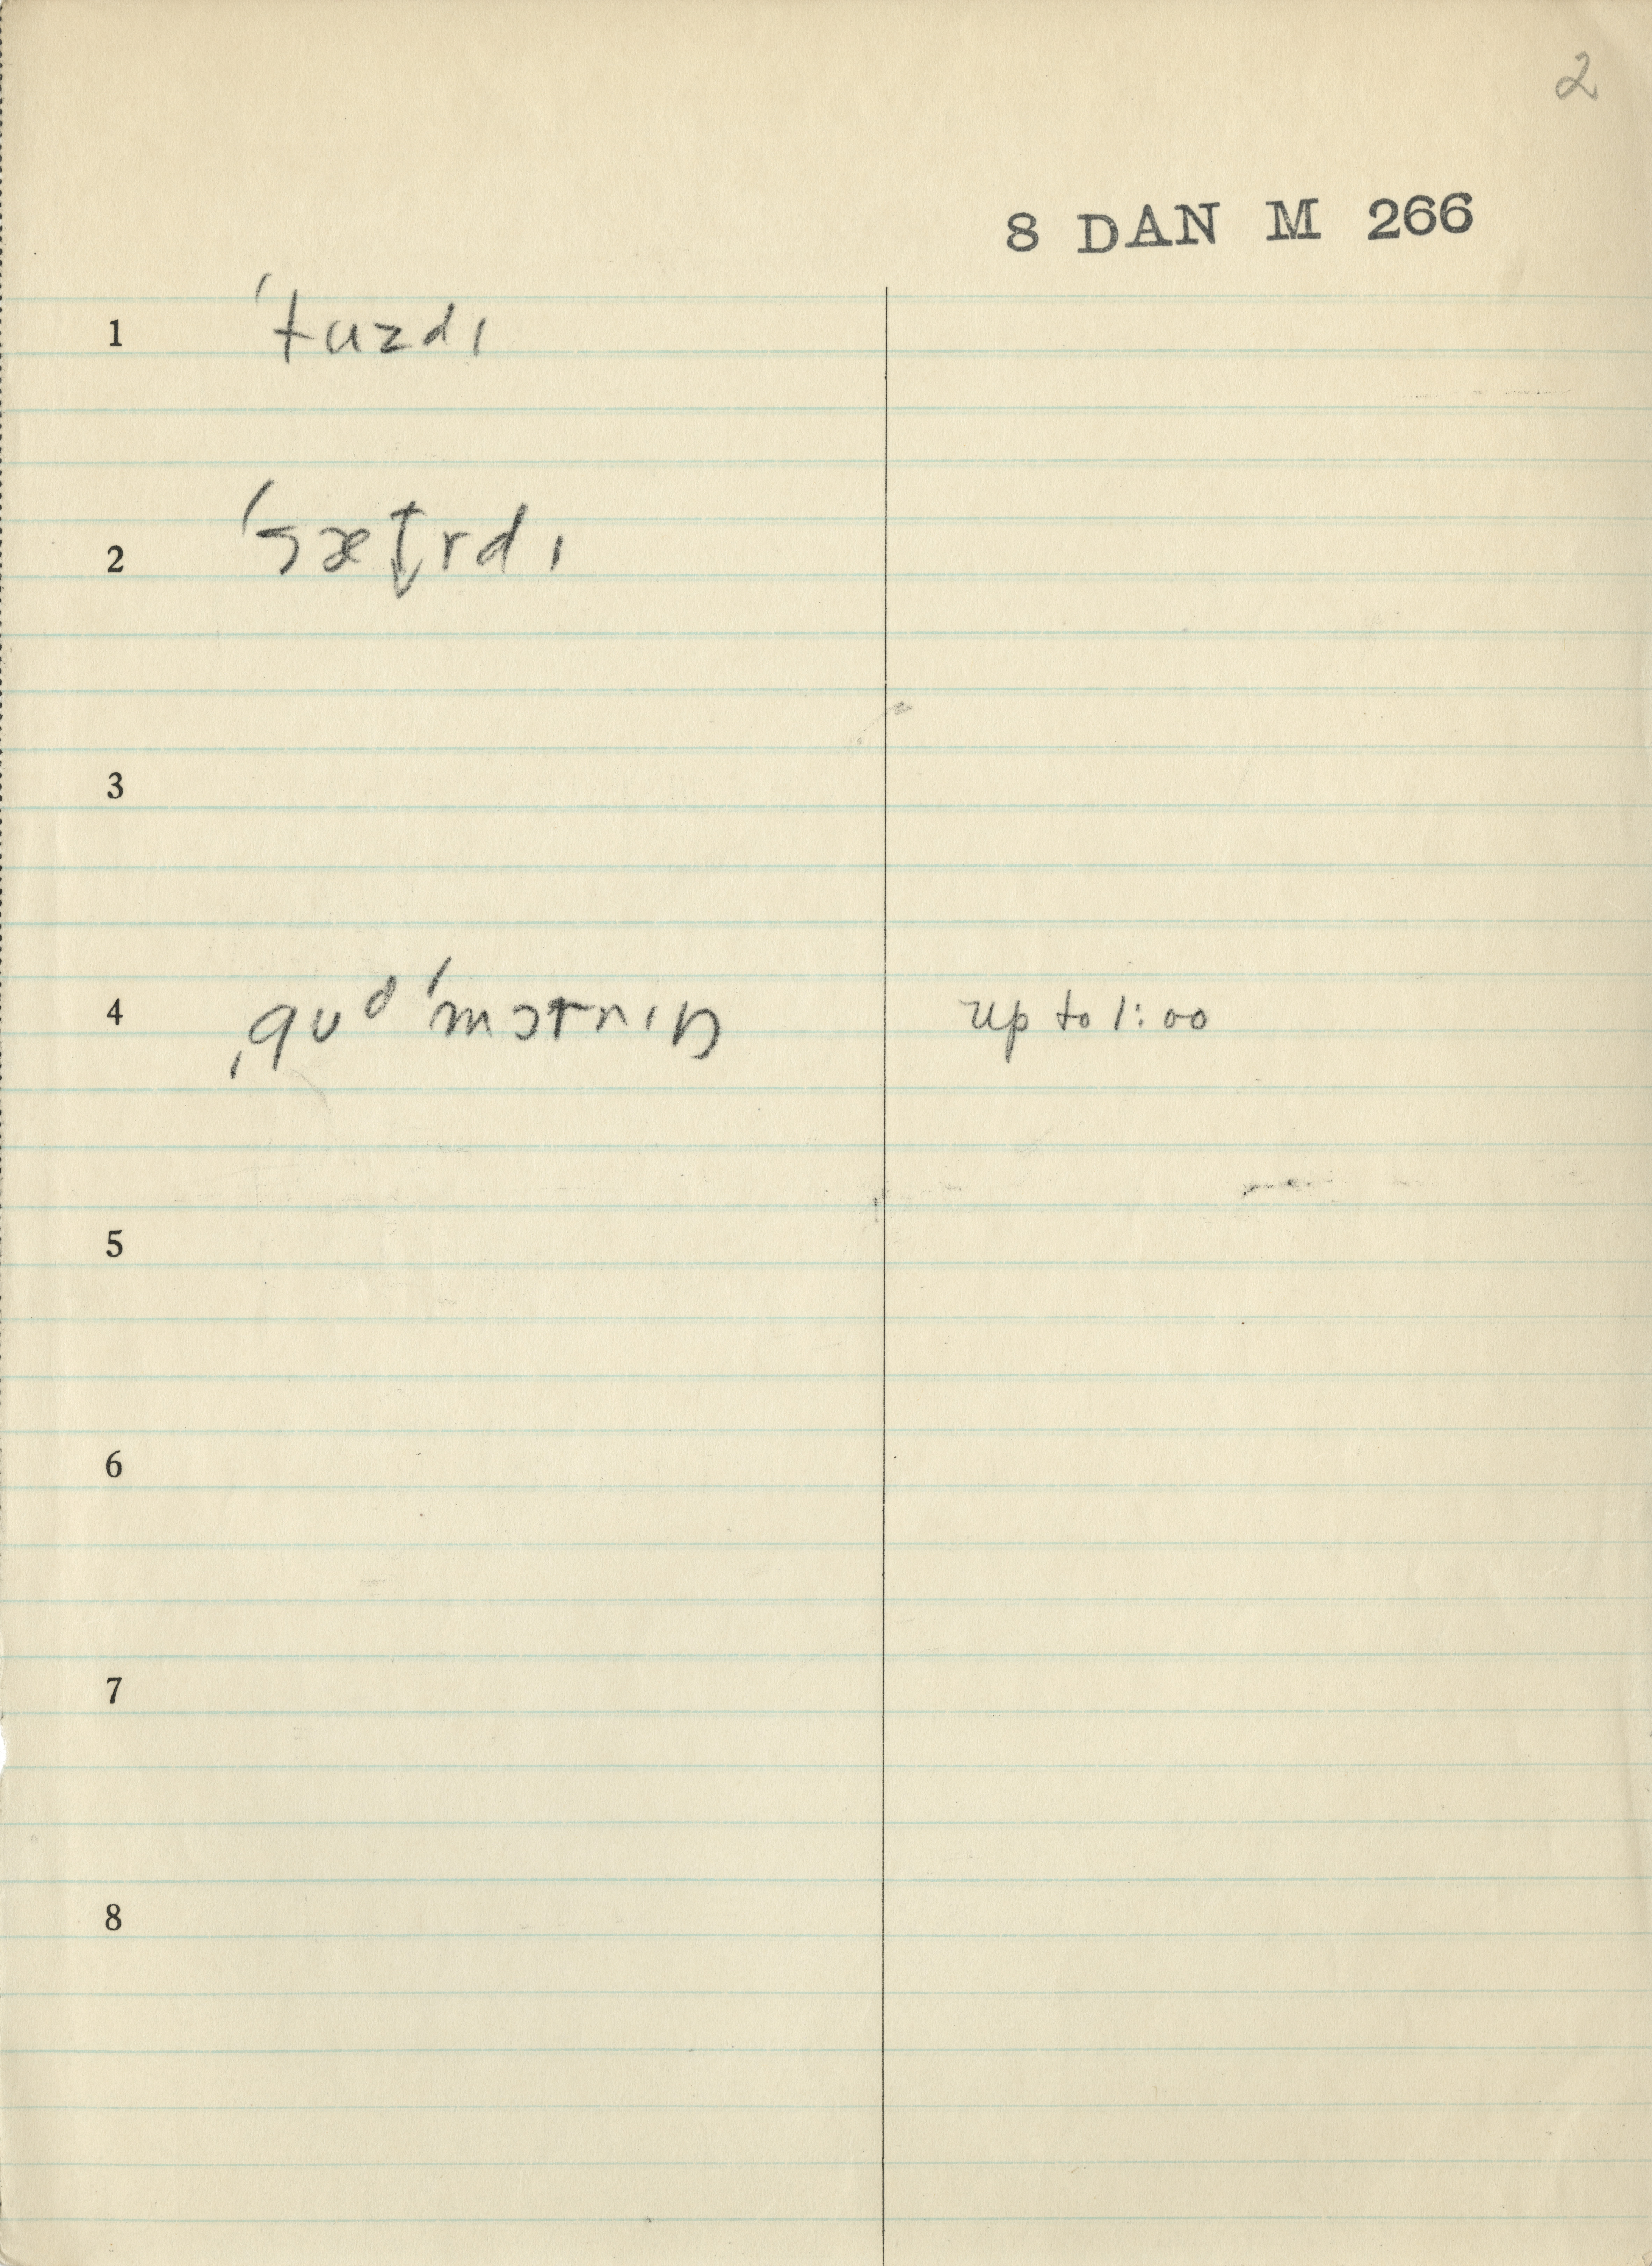 2
8 DAN M 266
1 ˈtuzdɪ
2 ˈsætɚrdɪ
3
4 ˌgʊdˈmɔrnɪŋ up to 1:00
5
6
7
8